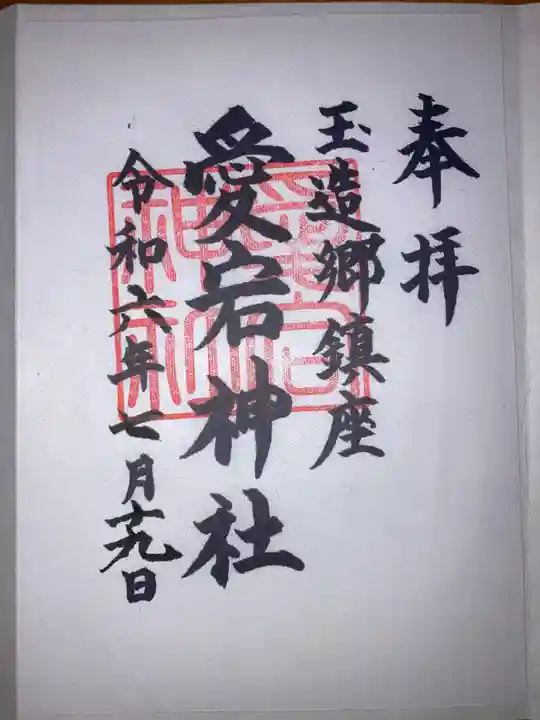 奉拝
玉造郷鎮座
愛宕神社
令和六年七月十九日